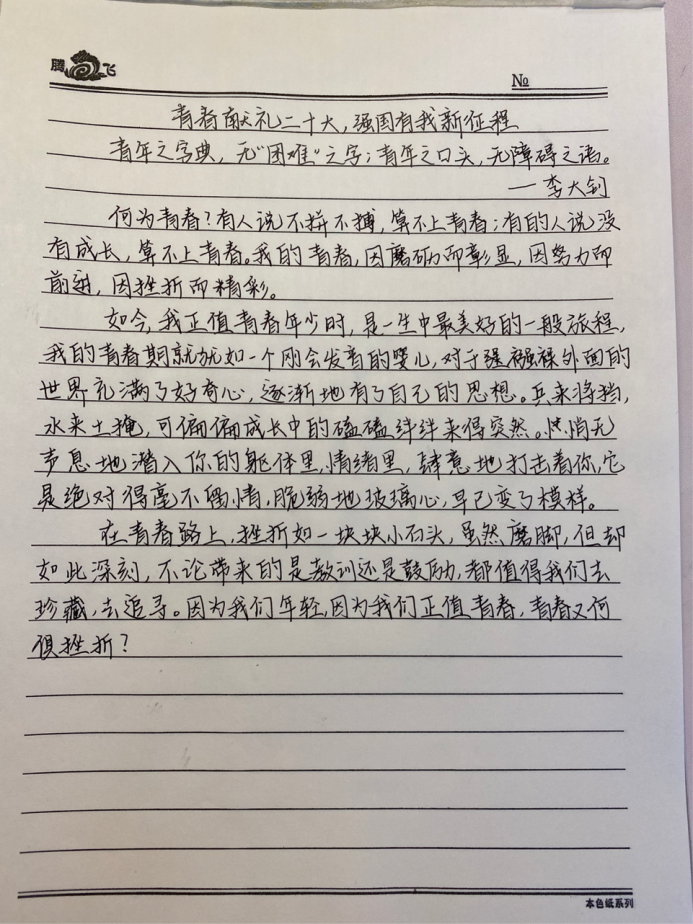 腾飞
№
青春献礼二十大，强国有我新征程
青年之字典，无“困难”之字；青年之口头，无障碍之语。
—李大钊
何为青春？有人说不拼不搏，算不上青春；有的人说没
有成长，算不上青春。我的青春，因磨砺而彰显，因努力而
前进，因挫折而精彩。
如今，我正值青春年少时，是一生中最美好的一般旅程，
我的青春期就犹如一个刚会发音的婴儿，对于强襁褓外面的
世界充满了好奇心，逐渐地有了自己的思想。兵来将挡，
水来土掩，可偏偏成长中的磕磕绊绊来得突然。悄悄无
声息地潜入你的躯体里，情绪里，肆意地打击着你，它
是绝对得毫不留情，脆弱地玻璃心，早已变了模样。
在青春路上，挫折如一块块小石头，虽然磨脚，但却
如此深刻，不论带来的是教训还是鼓励，都值得我们去
珍藏，去追寻。因为我们年轻，因为我们正值青春，青春又何
惧挫折？
本色纸系列